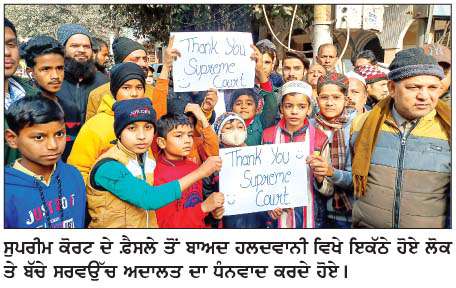 Thank You
Supreme
Court
Thank You
Supreme
Court
JUST
ਸੁਪਰੀਮ ਕੋਰਟ ਦੇ ਫ਼ੈਸਲੇ ਤੋਂ ਬਾਅਦ ਹਲਦਵਾਨੀ ਵਿਖੇ ਇਕੱਠੇ ਹੋਏ ਲੋਕ
ਤੇ ਬੱਚੇ ਸਰਵਉੱਚ ਅਦਾਲਤ ਦਾ ਧੰਨਵਾਦ ਕਰਦੇ ਹੋਏ।